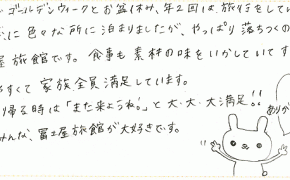 ゴールデンウィークとお盆休み、年2回は、旅行をしてい
に色々な所に泊りましたが、やっぱり落ちつくの
屋旅館です。食事も素材の味をいかしていてす
すくて家族全員満足しています。
帰る時は「また来ようね。」と大・大・大満足!!
みんな、冨士屋旅館が大好きです。
ありが